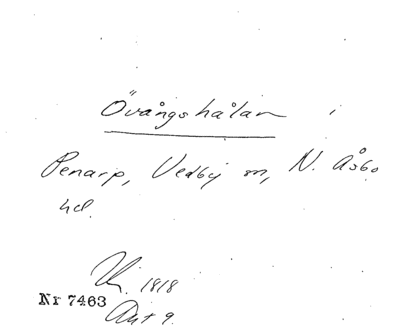 Övångshålan i
Penarp, Vedby sn, N. Åsbo
hd.
1818
Nr 7463
Akt 9.